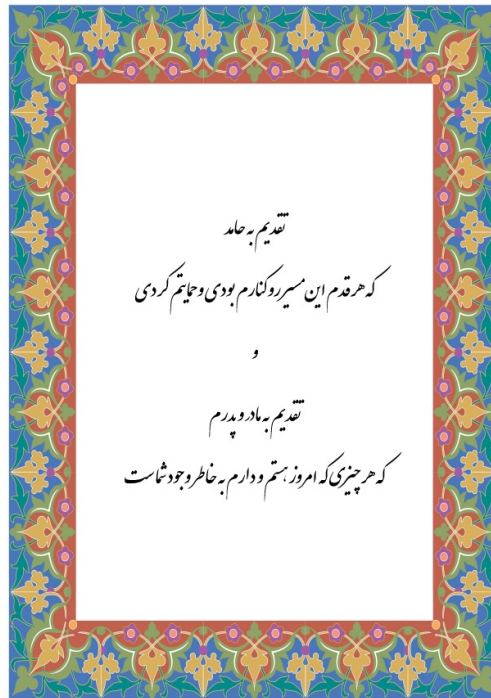 تقدیم به حامد
که هر قدم این مسیر رو کنارم بودی و حمایتم کردی
و
تقدیم به مادر و پدرم
که هر چیزی که امروز هستم و دارم به خاطر وجود شماست